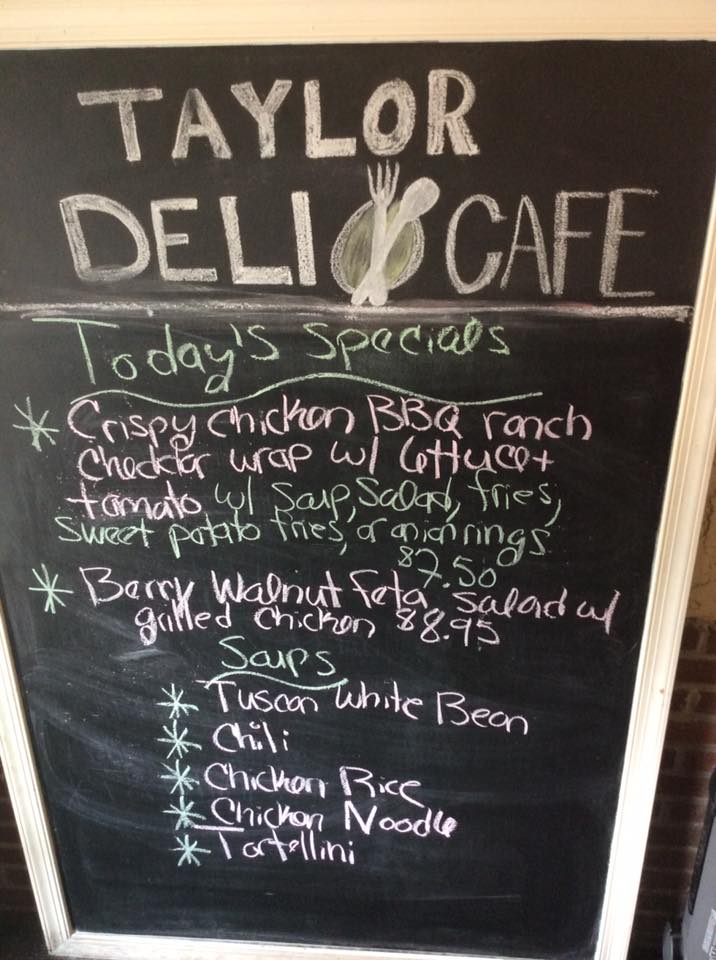 TAYLOR
DELI CAFE
Today's Specials
* Crispy chicken BBQ ranch
cheddar wrap w/ lettuce +
tomato w/ Soup, Salad, fries,
Sweet potato fries, or onion rings
$7.50
* Berry Walnut feta salad w/
grilled chicken $8.95
Soups
* Tuscan White Bean
* Chili
* Chicken Rice
* Chicken Noodle
* Tortellini